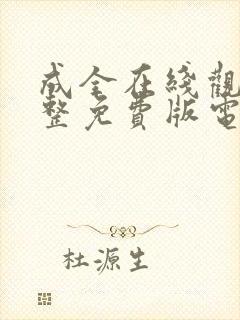 成全在綫觀
整免費版電
杜源生